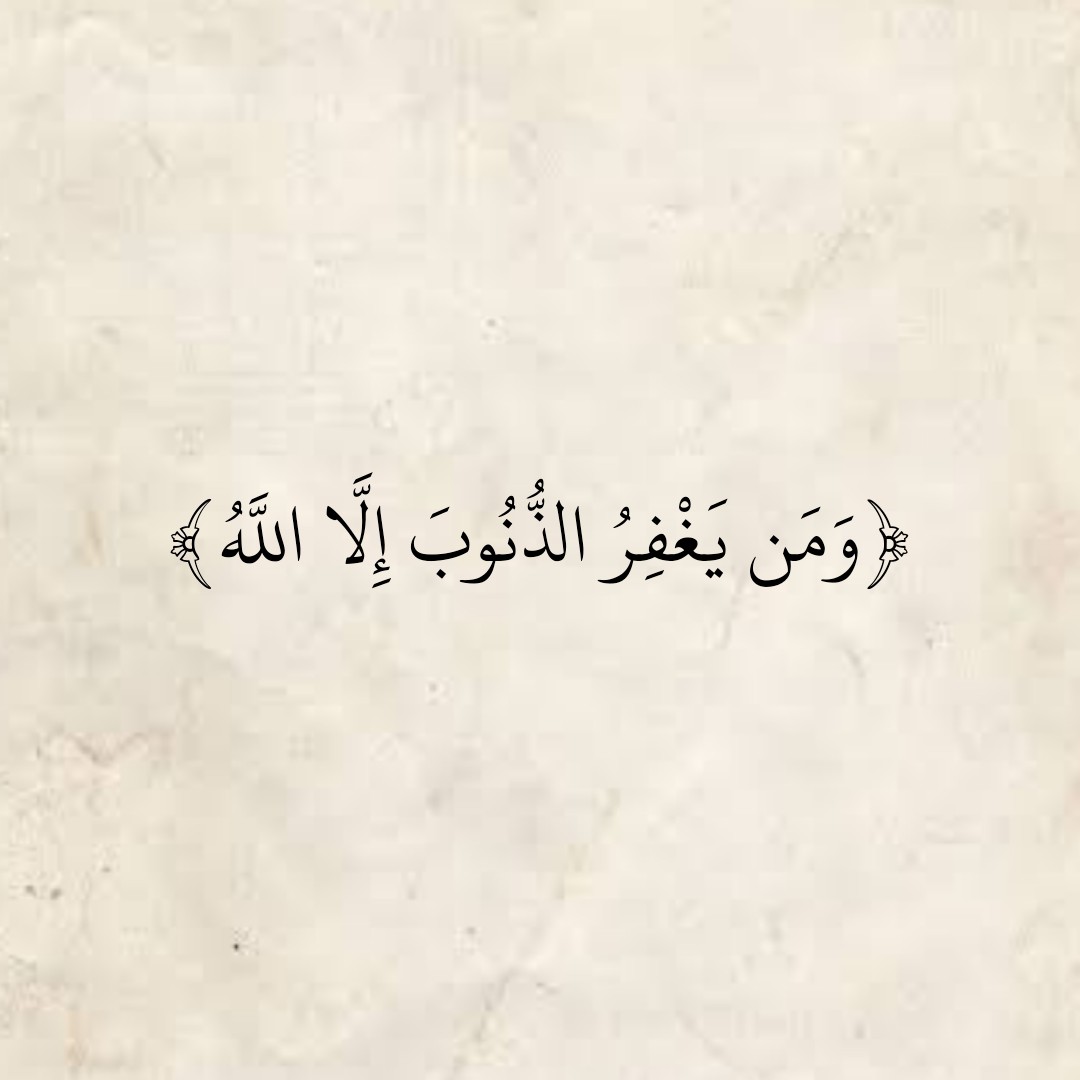 ﴿وَمَن يَغْفِرُ الذُّنُوبَ إِلَّا اللَّهُ﴾